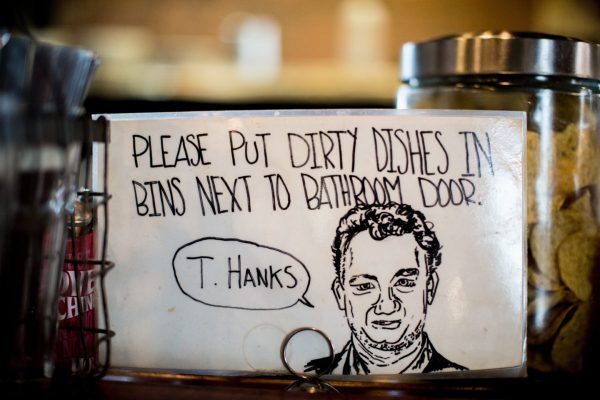 PLEASE PUT DIRTY DISHES IN
BINS NEXT TO BATHROOM DOOR.
T. HANKS